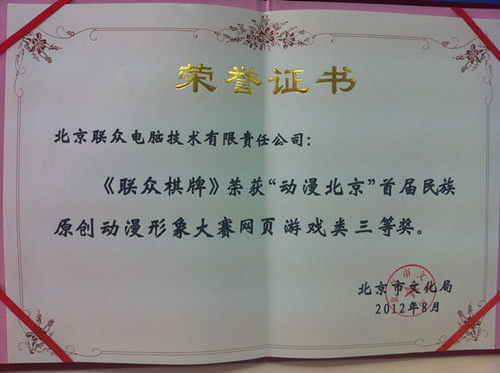 荣誉证书
北京联众电脑技术有限责任公司：
《联众棋牌》荣获“动漫北京”首届民族
原创动漫形象大赛网页游戏类三等奖。
北京市文化局
2012年8月